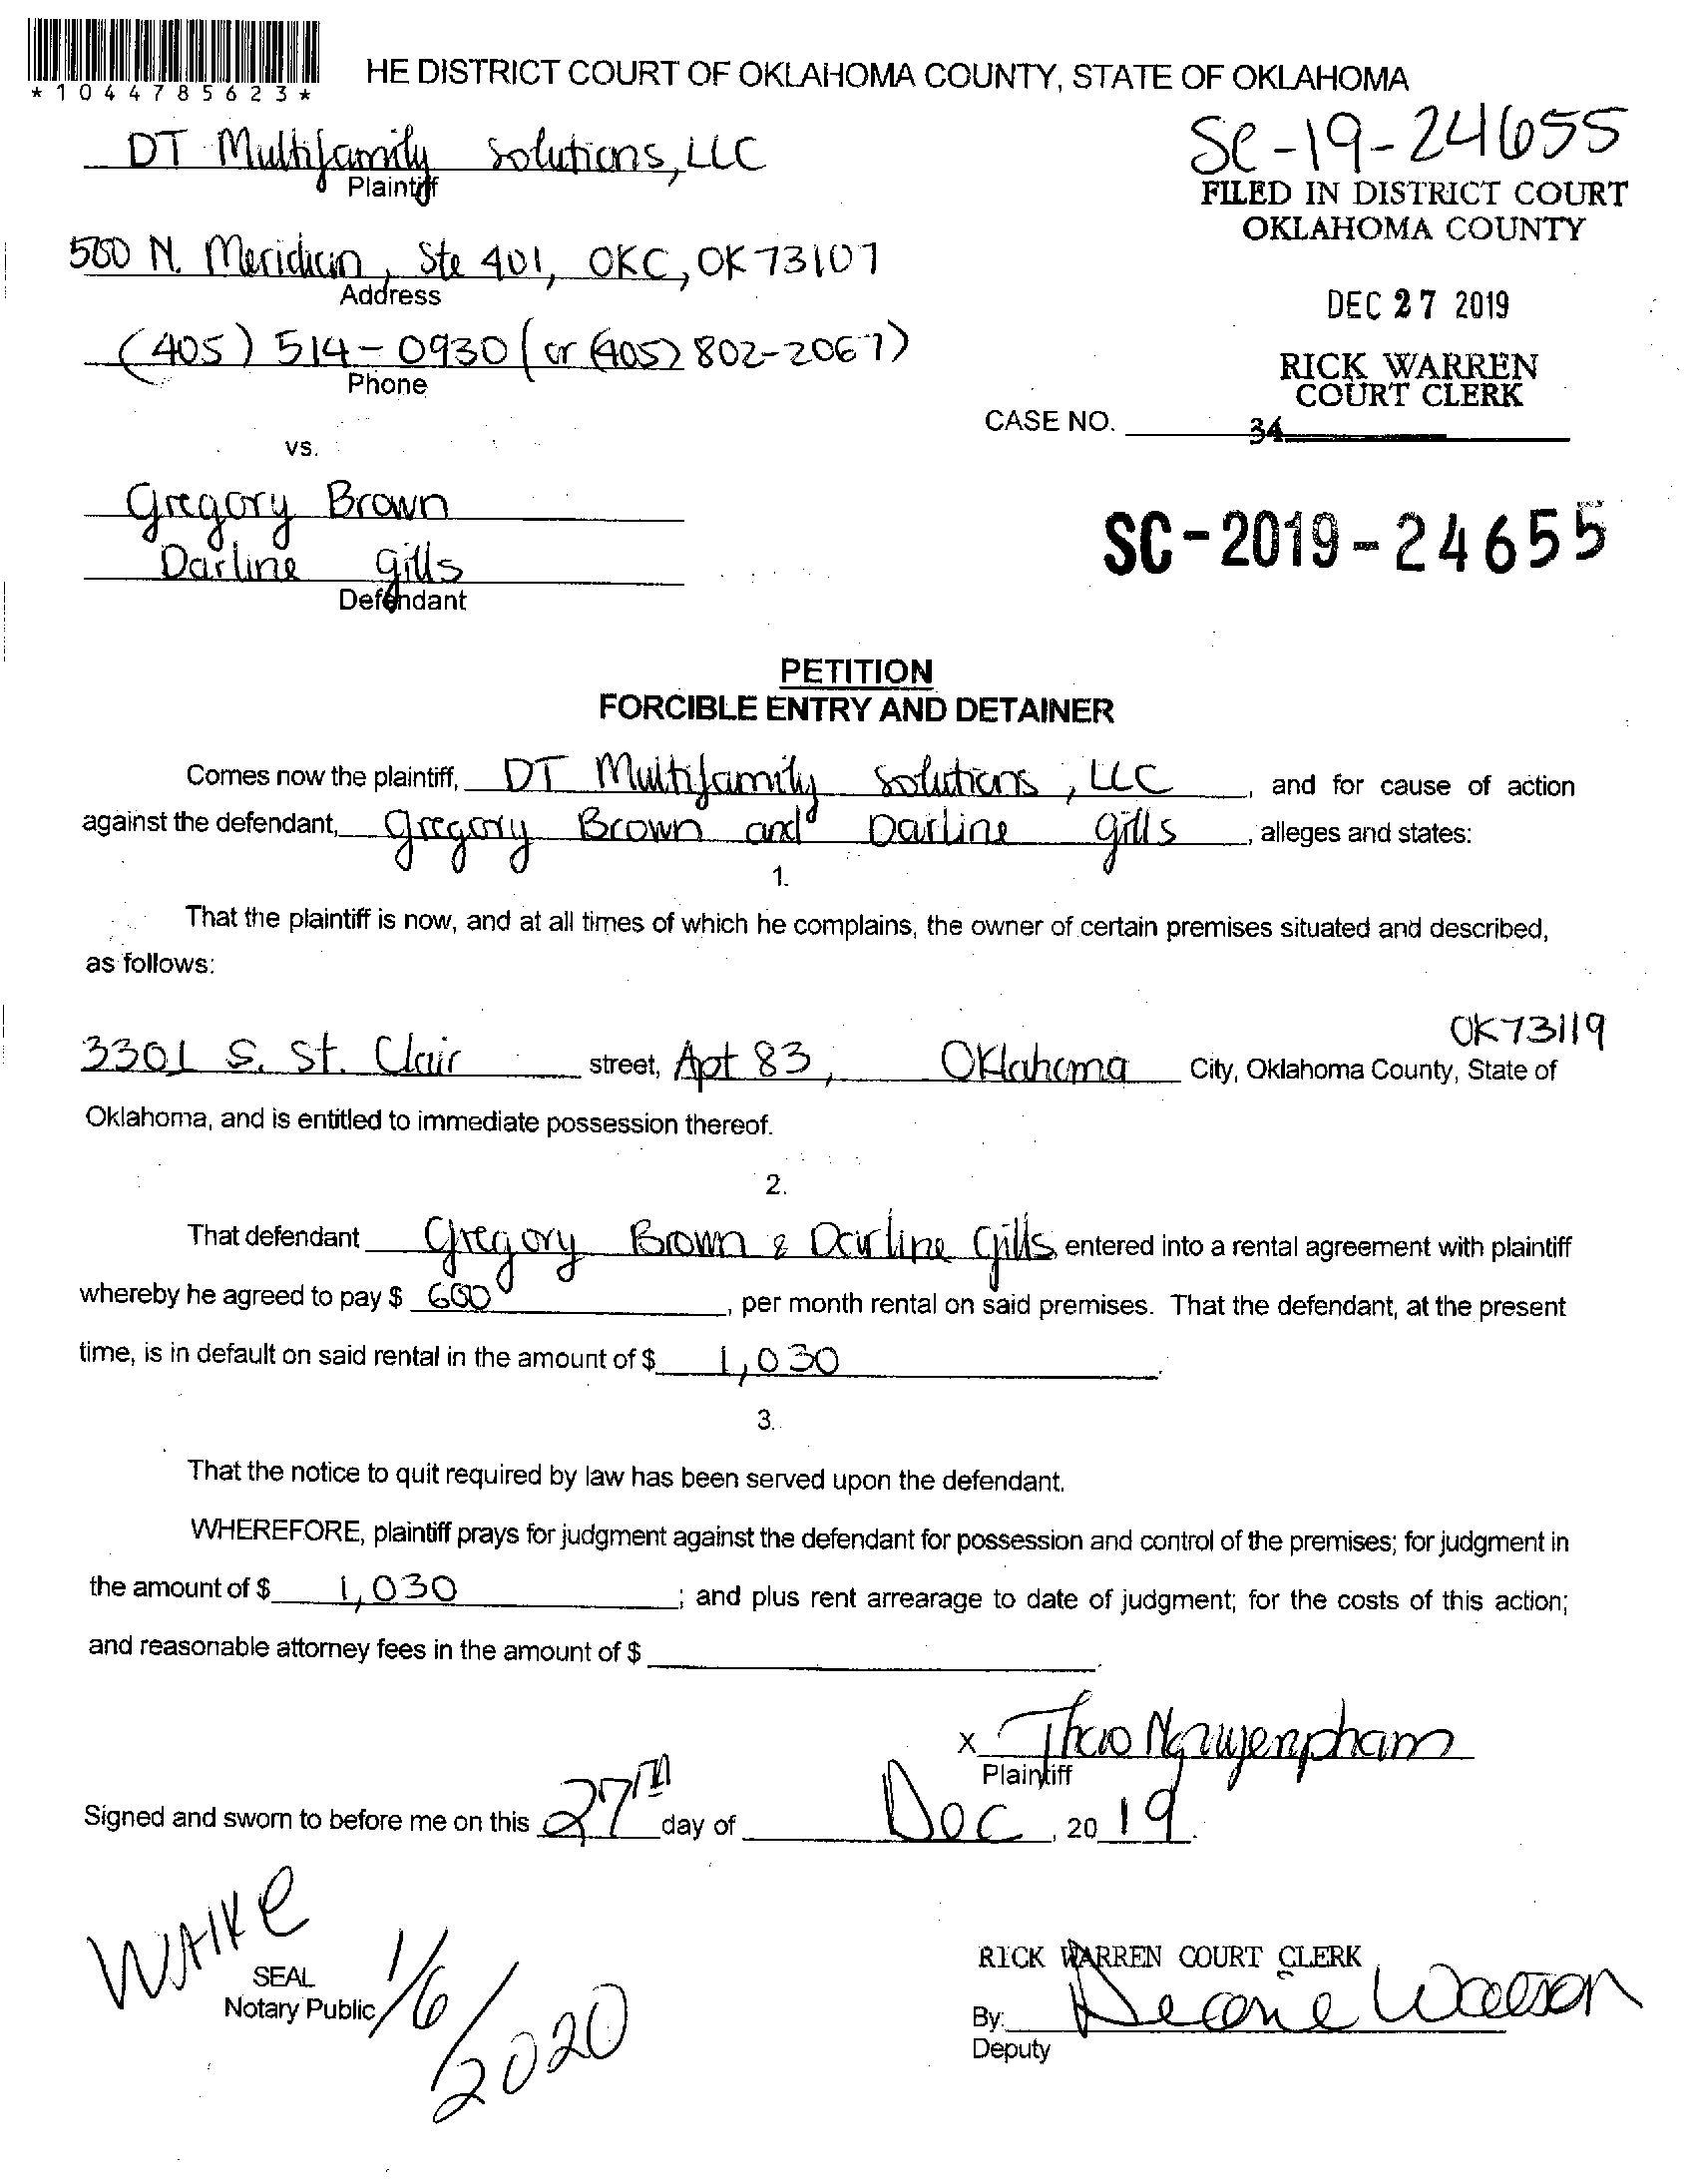 *1044785623*
HE DISTRICT COURT OF OKLAHOMA COUNTY, STATE OF OKLAHOMA
DT Multifamily Solutions, LLC
Plaintiff
SC-19-24655
FILED IN DISTRICT COURT
OKLAHOMA COUNTY
500 N. Meridian, Ste 401, OKC, OK 73107
Address
DEC 27 2019
(405) 514-0930 (or (405) 802-2067)
Phone
RICK WARREN
COURT CLERK
CASE NO.
34
vs.
Gregory Brown
Darline Gills
Defendant
SC-2019-24655
PETITION
FORCIBLE ENTRY AND DETAINER
Comes now the plaintiff, DT Multifamily Solutions, LLC, and for cause of action
against the defendant, Gregory Brown and Darline Gills, alleges and states:
1.
That the plaintiff is now, and at all times of which he complains, the owner of certain premises situated and described,
as follows:
OK 73119
3301 S. St. Clair street, Apt 83, Oklahoma City, Oklahoma County, State of
Oklahoma, and is entitled to immediate possession thereof.
2.
That defendant Gregory Brown & Darline Gills entered into a rental agreement with plaintiff
whereby he agreed to pay $ 600, per month rental on said premises. That the defendant, at the present
time, is in default on said rental in the amount of $ 1,030.
3.
That the notice to quit required by law has been served upon the defendant.
WHEREFORE, plaintiff prays for judgment against the defendant for possession and control of the premises; for judgment in
the amount of $ 1,030; and plus rent arrearage to date of judgment; for the costs of this action;
and reasonable attorney fees in the amount of $ .
X Thao Nguyenpham
Plaintiff
Signed and sworn to before me on this 27TH day of Dec, 2019.
WAIKE
SEAL
Notary Public
1/6/2020
RICK WARREN COURT CLERK
By:
Deputy